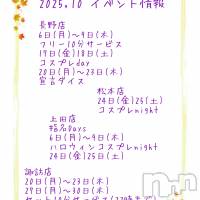 2025.10 イベント情報
長野店
6日(月)～9日(木)
フリー10分サービス
17日(金)18日(土)
コスプレday
20日(月)～23日(木)
宣言ダイス
松本店
24日(金)25(土)
コスプレnight
上田店
指名Days
6日(月)～9日(木)
ハロウィンコスプレnight
24日(金)25(土)
諏訪店
20日(月)～23日(木)
27日(月)～30日(木)